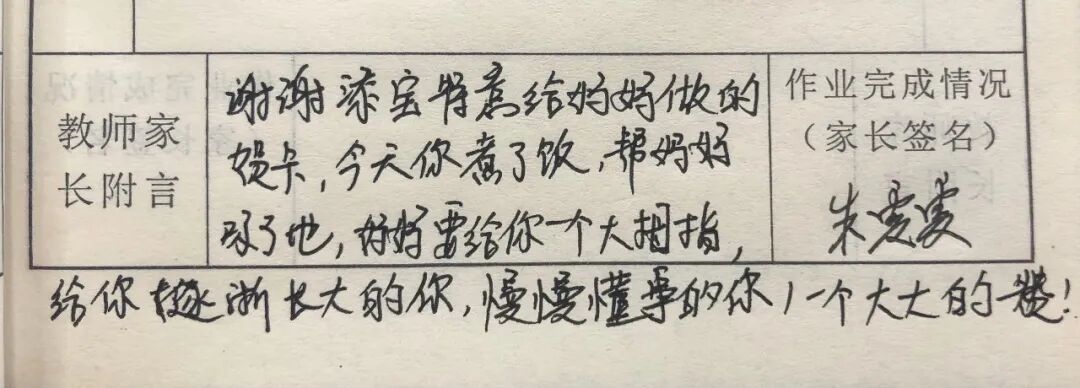 教师家
长附言
谢谢添宝特意给妈妈做的
贺卡，今天你煮了饭，帮妈妈
了地，妈妈要给你一个大拇指，
作业完成情况
（家长签名）
朱雯雯
给你逐渐长大的你，慢慢懂事的你，一个大大的赞！